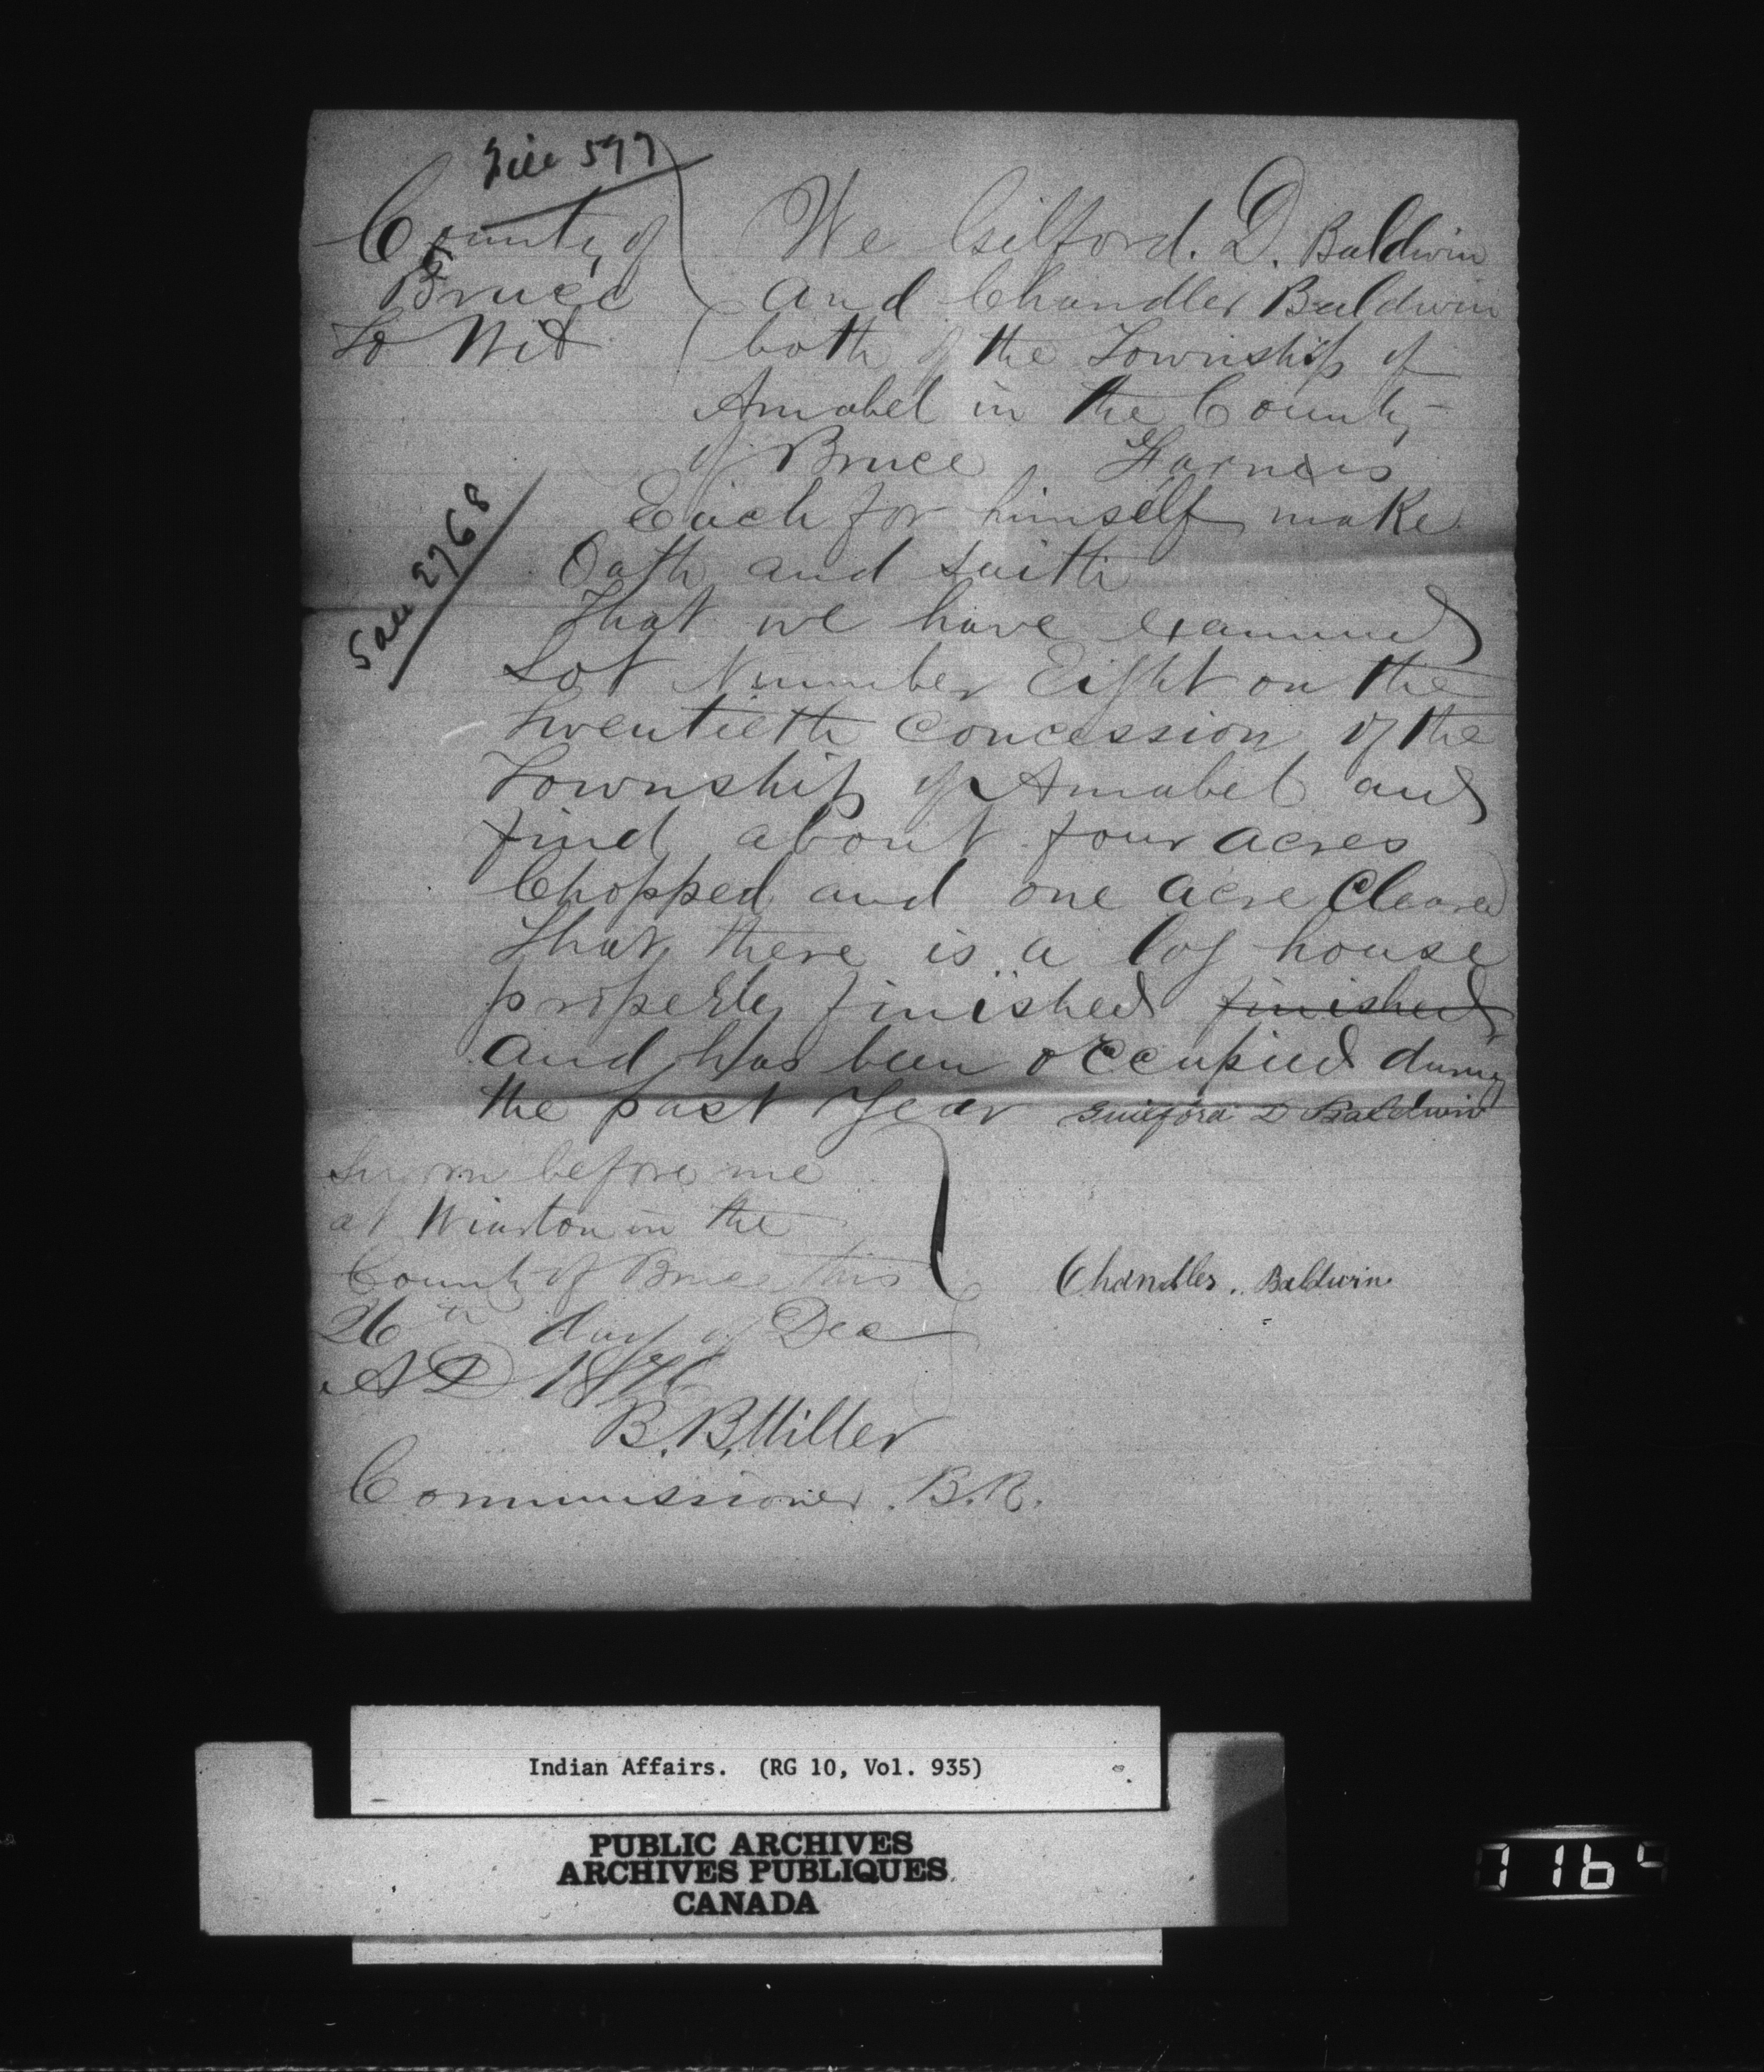 File 597
County of
Bruce
To Wit
We Gilford. D. Baldwin
and Chandler Baldwin
both of the Township of
Amabel in the County
of Bruce Farmers
Each for himself make
Oath and saith
That we have examined
Lot Number Eight on the
twentieth concession of the
Township of Amabel and
find about four acres
Chopped and one acre Cleared
That there is a log house
properly finished finished
and has been occupied during
the past Year
Sale 2768
Guilford D Baldwin
Sworn before me
at Wiarton in the
County of Bruce this
26th day of Dec
AD
Chandler. Baldwin
B. B. Miller
Commissioner. B.R.
Indian Affairs. (RG 10, Vol. 935)
PUBLIC ARCHIVES
ARCHIVES PUBLIQUES
CANADA